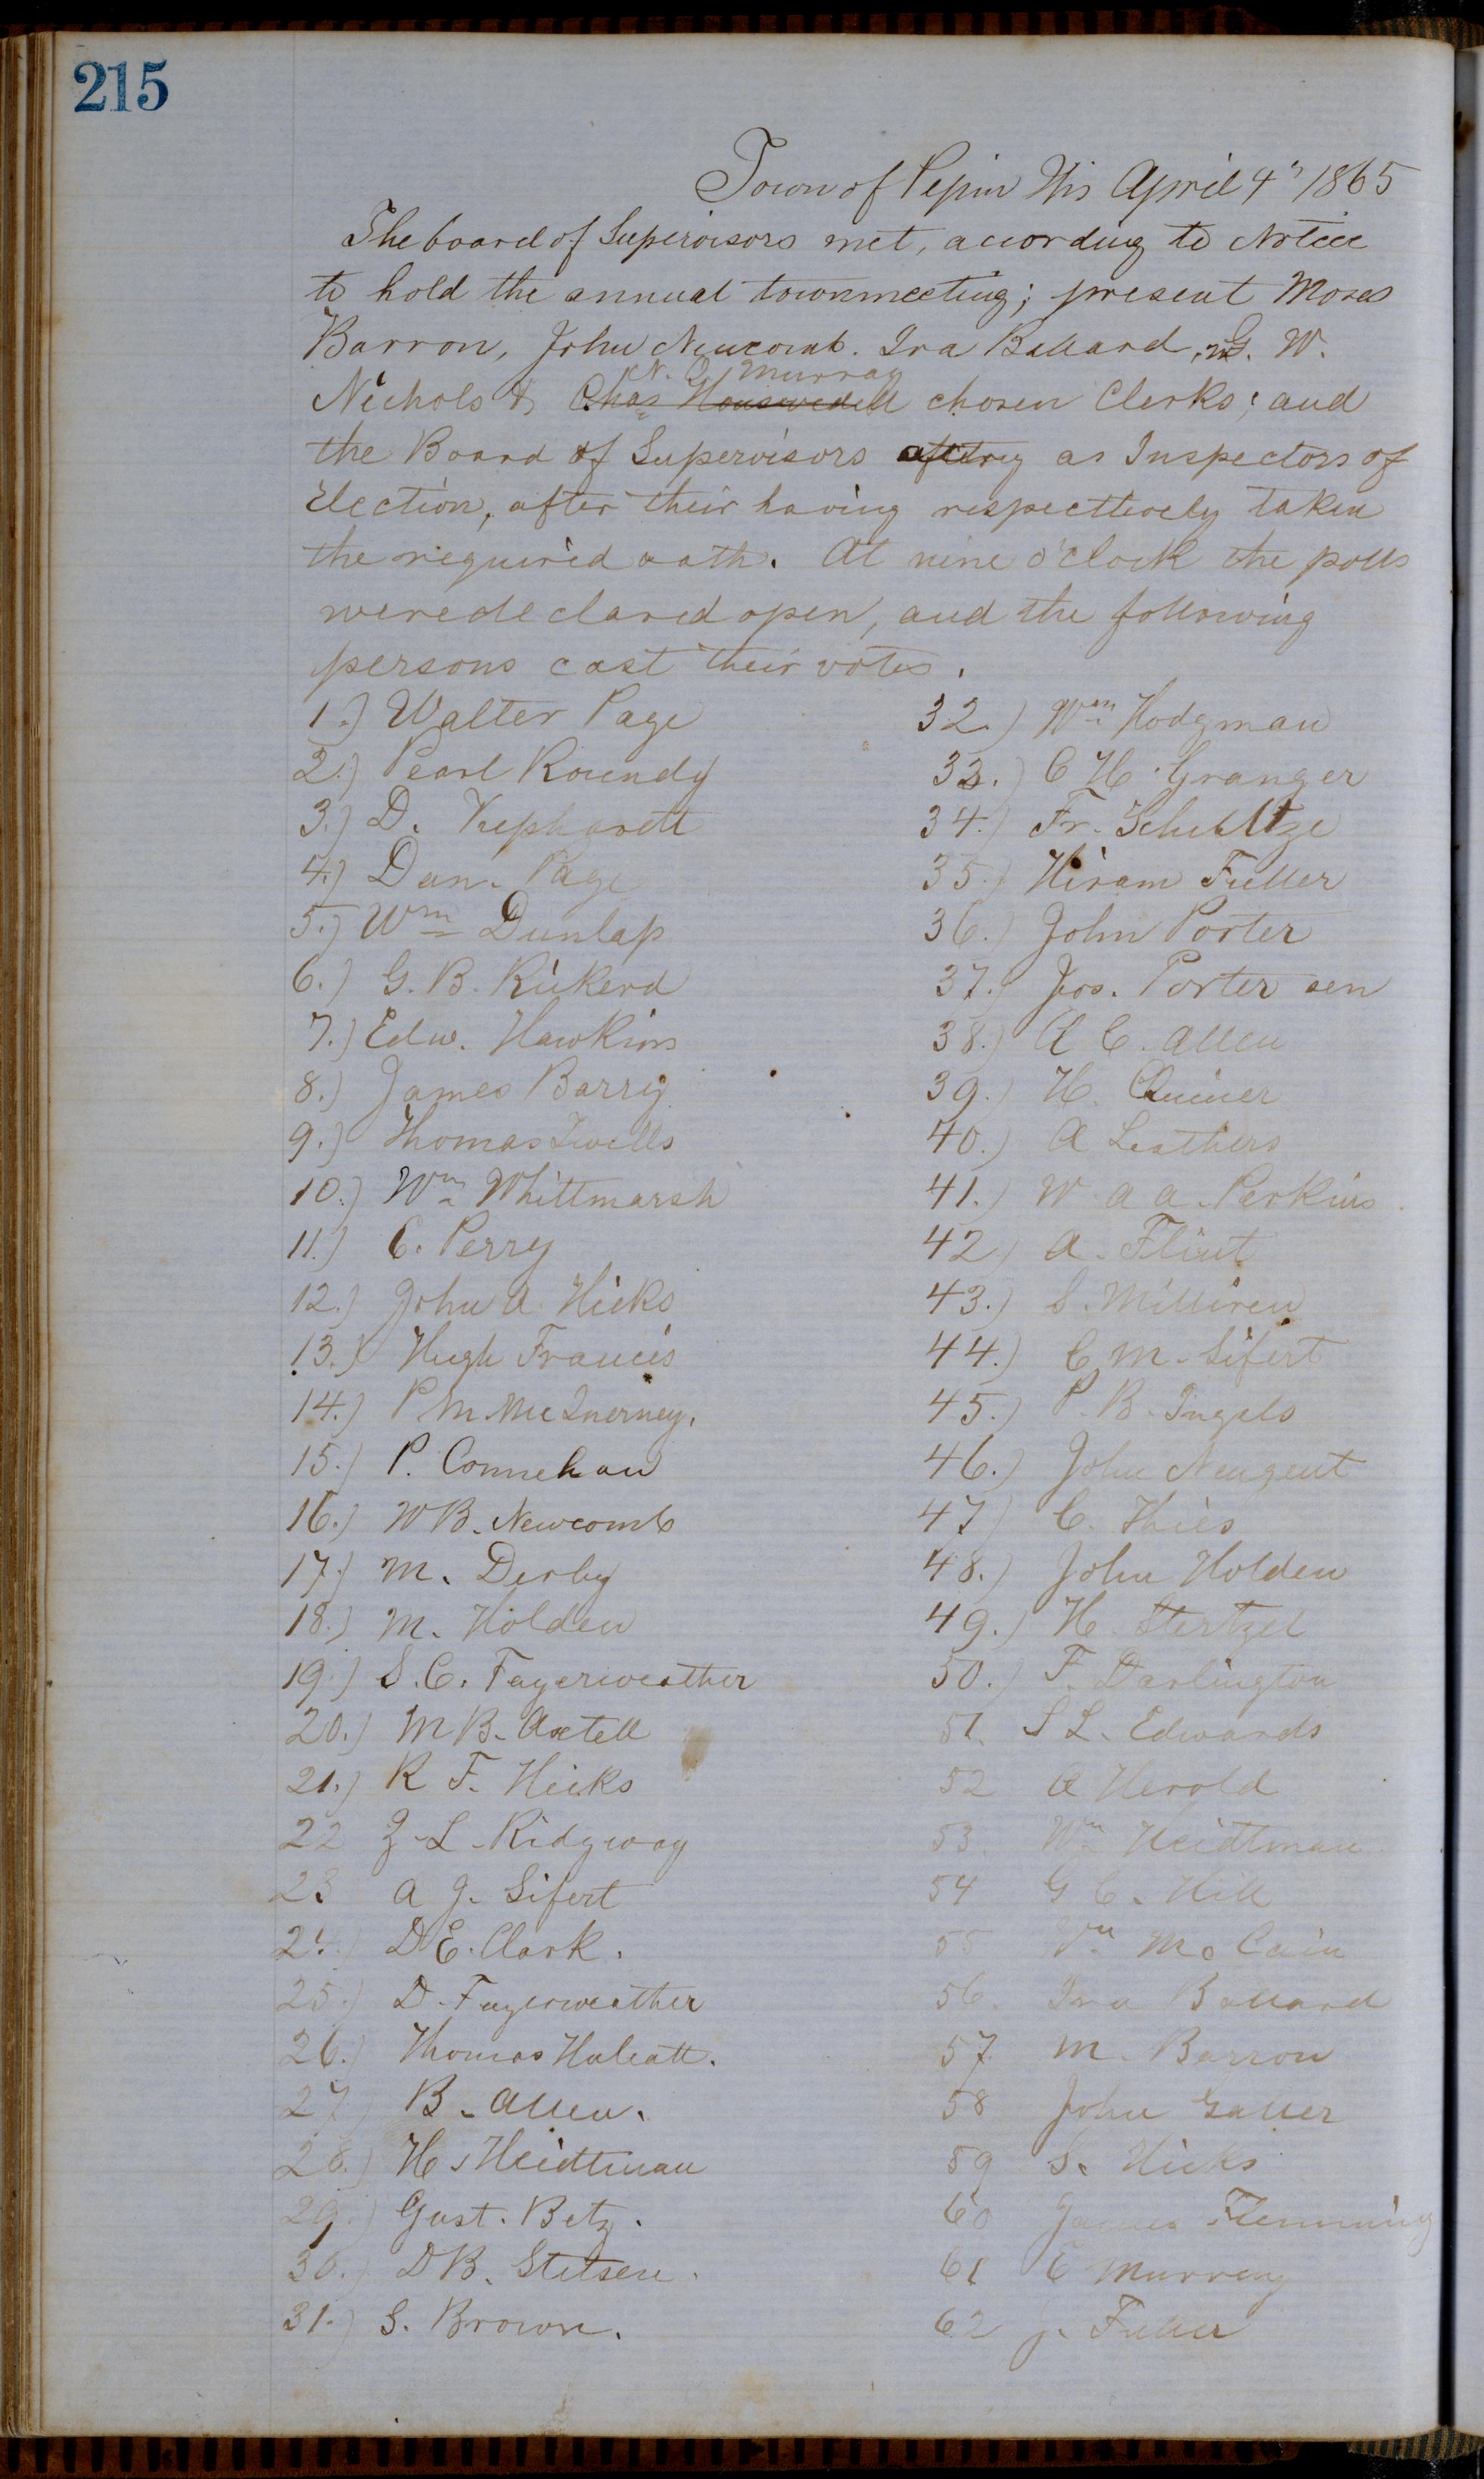 215
Town of Pepin Wis April 4" 1865
The board of Supervisors met, acording to Notice
to hold the annual townmeeting; present Moses
Barron, John Newcomb. Ira Ballard, G. W.
N. Q. Murray
Nichols & Chas Housewedell chosen Clerks; and
the Board of Supervisors as Inspectors of
Election, after their having respecttively taken
the required oath. At nine o'clock the polls
were declared open, and the following
persons cast their votes.
1.) Walter Page
2.) Pearl Roundy
3.) D. Kephardt
4.) Dan. Page
5.) Wm Dunlap
6.) G. B. Rickerd
7.) Edw. Hawkins
8.) James Barry
9.) Thomas Twells
10.) Wm Whittmarsh
11.) C. Perry
12.) John A Hicks
13.) Hugh Francis
14.) P M McInerney.
15.) P. Connehan
16.) W B. Newcomb
17.) M. Derby
18.) M. Holden
19.) S. C. Fayerweather
20.) M B. Axtell
21.) R F. Hicks
22 Z. L. Ridgway
23 A J. Sifert
24.) D E. Clark.
25.) D. Fayerweather
26.) Thomas Huleatt.
27) B. Allen.
28.) H. Heidtman
29.) Gust. Betz.
30.) D B. Stetsen.
31.) S. Brown.
32.) Wm Hodgman
33.) C H. Granger
34.) Fr. Schultze
35.) Hiram Fuller
36.) John Porter
37.) Jos. Porter sen
38.) A C. Allen
39.) H. Quiner
40.) A Leathers
41.) W A A. Perkins
42) A. Flint
43.) S. Milliren
44.) C M. Sifert
45.) P. B. Ingels
46.) John Neugent
47) C. Thies
48.) John Holden
49.) H. Stertzel
50.) F. Darlington
51. S L. Edwards
52 A Herold
53. Wm Heidtman
54 G C. Hill
55 Wm McCain
56. Ira Ballard
57 M. Barron
58 John Galler
59 S. Hicks
60 James Flemming
61 C Murray
62 J. Fuller